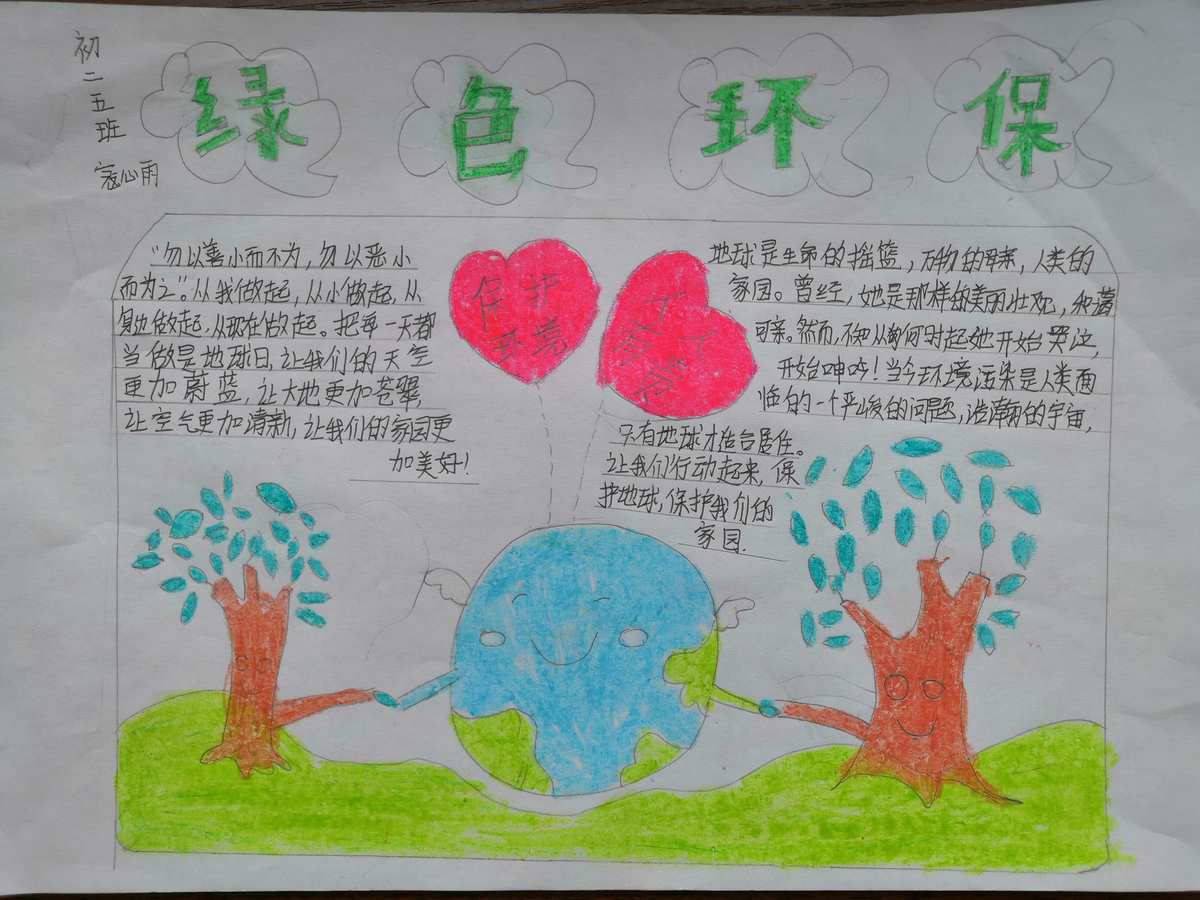 初二五班
寇心雨
绿色环保
"勿以善小而不为，勿以恶小
而为之"。从我做起，从小做起，从
身边做起，从现在做起。把每一天都
当做是地球日，让我们的天空
更加蔚蓝，让大地更加苍翠，
让空气更加清新，让我们的家园更
加美好！
保护
环境
人人
有责
地球是生命的摇篮，万物的母亲，人类的
家园。曾经，她是那样的美丽壮观，和蔼
可亲。然而，不知从何时起她开始哭泣，
开始呻吟！当今环境污染是人类面
临的一个严峻的问题，浩瀚的宇宙，
只有地球才适合居住。
让我们行动起来，保
护地球，保护我们的
家园.